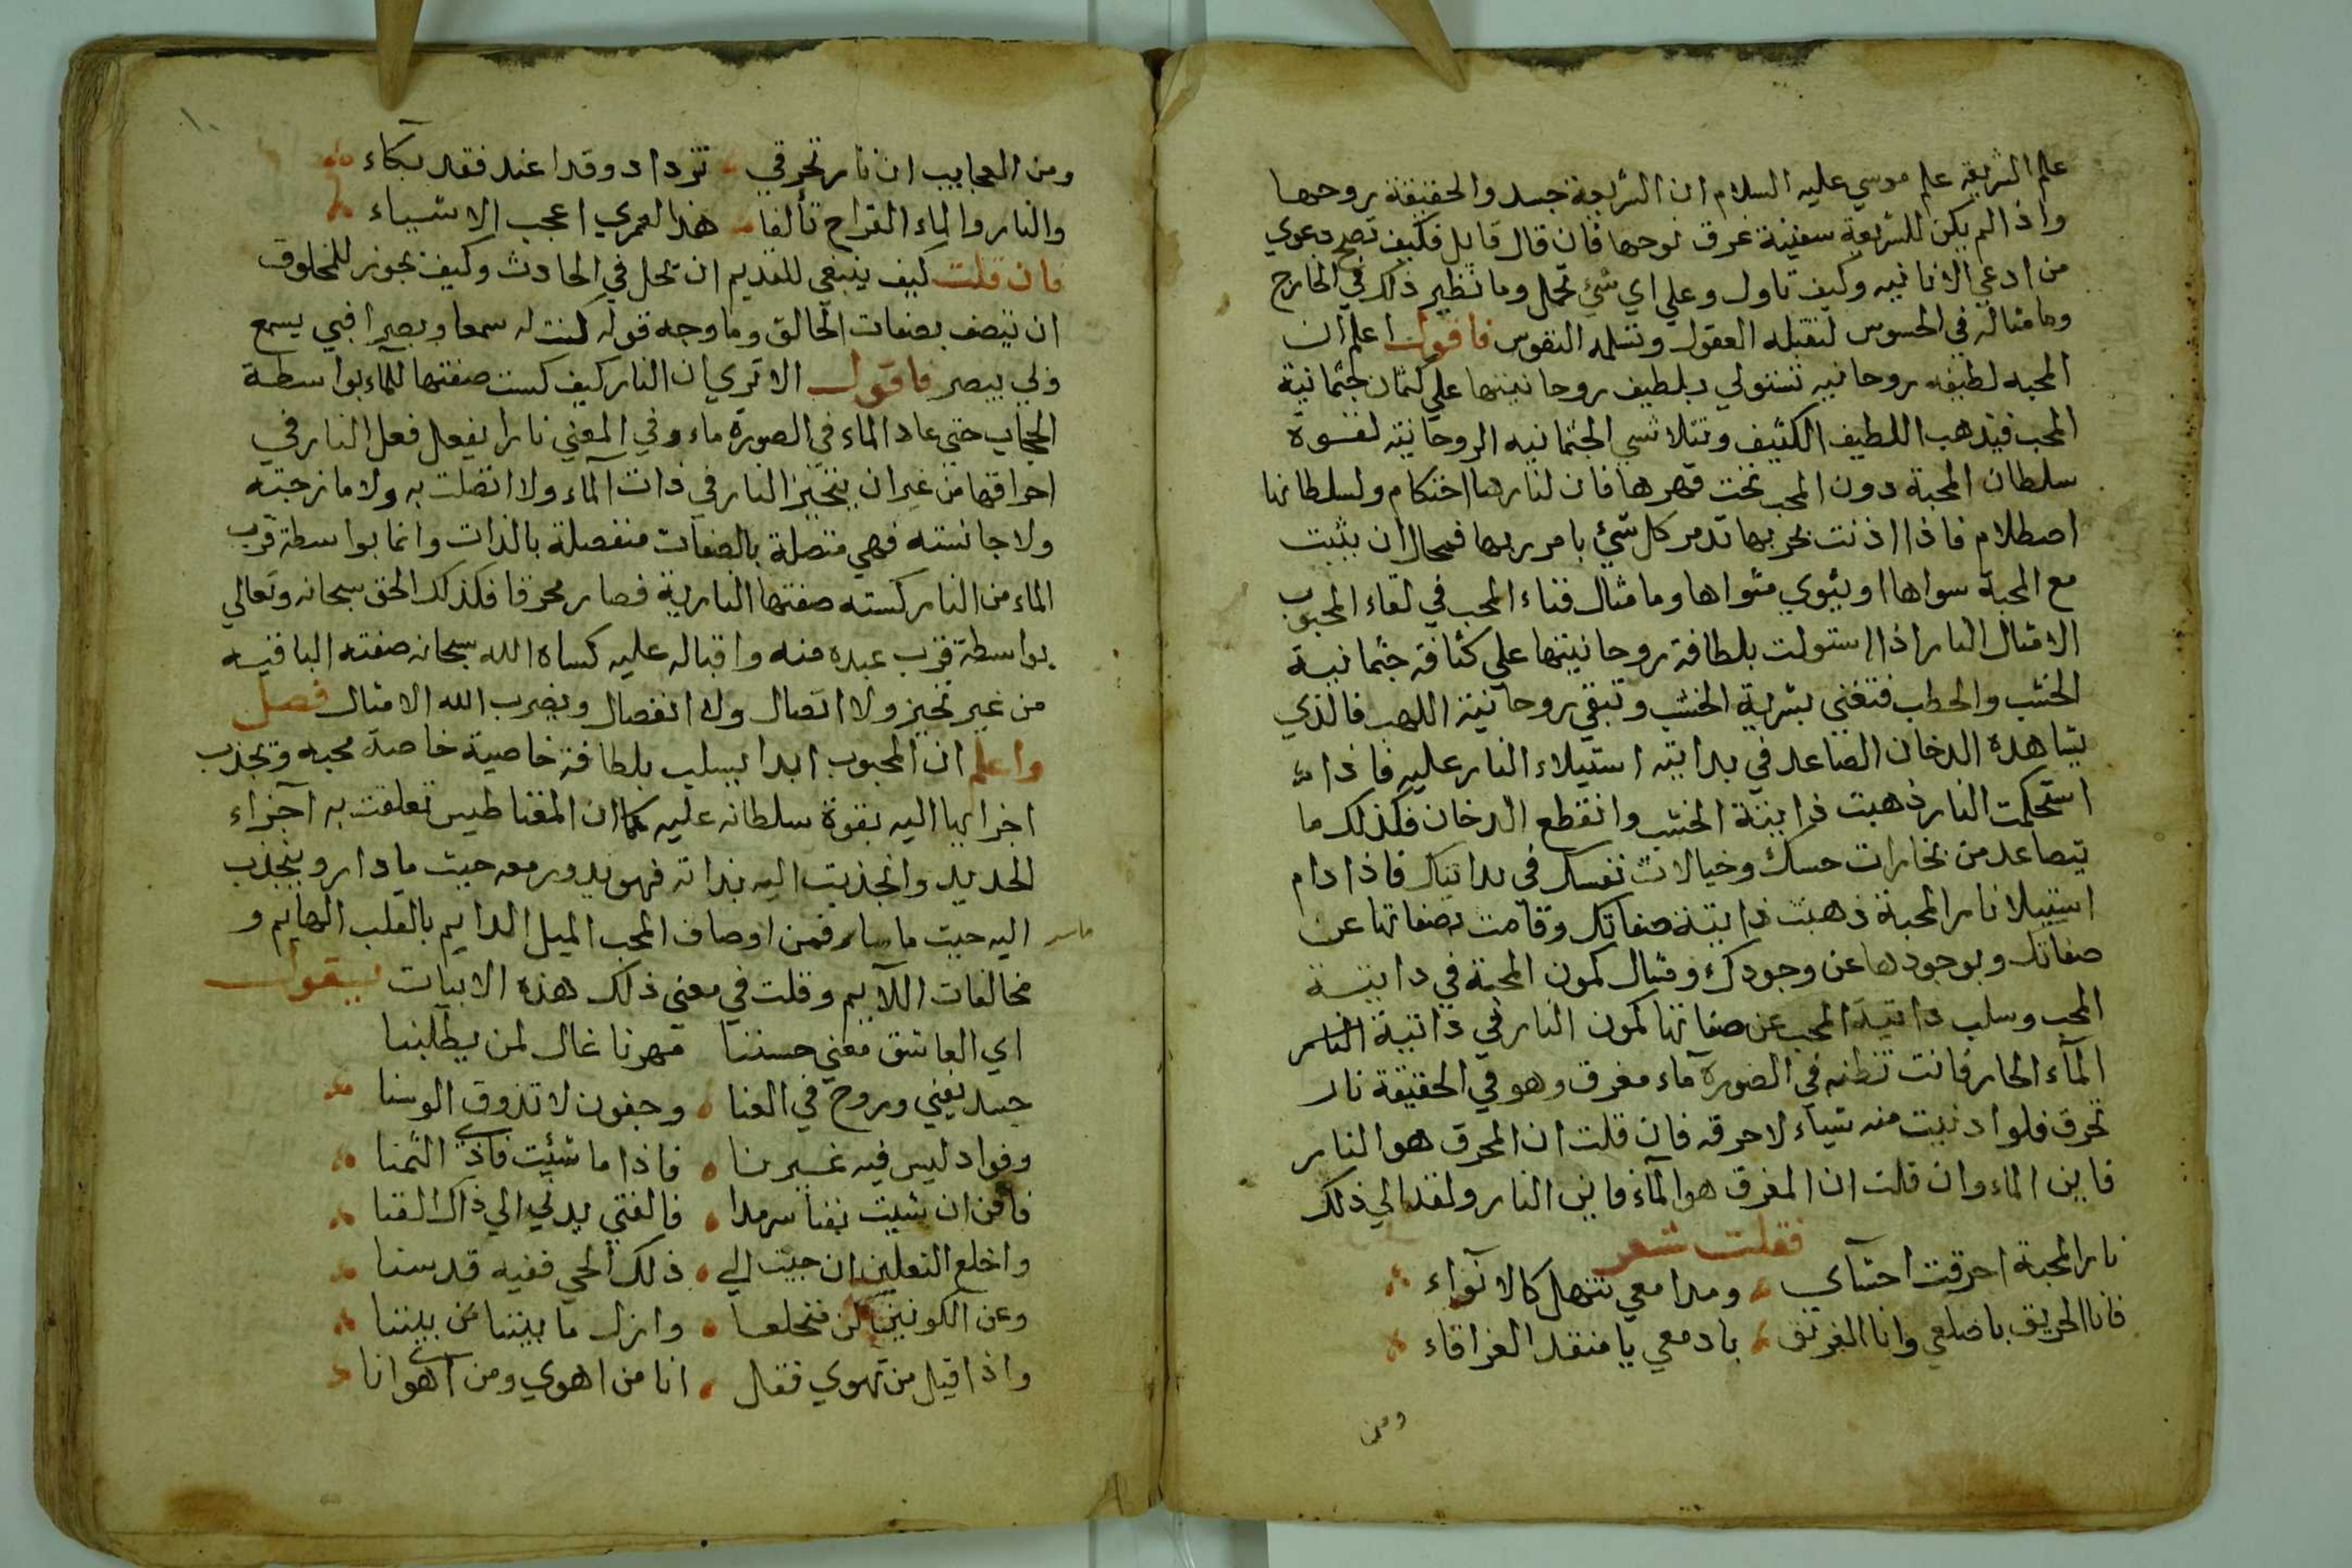 علم الشريعه علم موسي عليه السلام ان الشريعة جسد والحقيقة روحها
واذا لم يكن للشريعة سفينة غرق نوحها فان قال قايل فكيف تصح دعوي
من ادعي الانانيه وكيف تاول وعلي اي شئ تحمل وما نظير ذلك في الخارج
وما مثاله في المحسوس لتقبله العقول وتسلمه النفوس فاقول اعلم ان
المحبه لطيفه روحانيه تستولي بلطيف روحانيتها علي كثمان جثمانية
المحب فيذهب اللطيف الكثيف وتتلاشي الجثمانيه الروحانيته لقوة
سلطان المحبة دون المحب تحت قهرها فان لنارها احتكام ولسلطانها
اصطلام فاذا اذنت بحربها تدمر كل شئ بامر ربها فمحال ان يثبت
مع المحبة سواها او يثوي مثواها وما مثال فناء المحب في لقاء المحبوب
الا مثال النار اذا استولت بلطافة روحانيتها علي كثافة جثمانية
الخشب والحطب فتفني بشرية الخشب وتبقي روحانية اللهب فالذي
يشاهده الدخان الصاعد في بدايته استيلاء النار عليه فاذا
استحكمت النار ذهبت ذاتية الخشب وانقطع الدخان فكذلك ما
يتصاعد من بخارات حسك وخيالات نفسك في بدايتك فاذا دام
استيلا نار المحبة ذهبت ذاتية صفاتك وقامت بصفاتها عن
صفاتك وبوجودها عن وجودك ومثال كمون المحبة في ذاتية
المحب وسلب ذاتية المحب عن صفاتها كمون النار في ذاتية الناس
المآء الحار فانت تظنه في الصورة ماء مغرق وهو في الحقيقة نار
تحرق فلو ادنيت منه شياء لاحرقه فان قلت ان المحرق هو النار
فاين الماء وان قلت ان المغرق هو المآء فاين النار ولقد الي ذلك
فقلت شعر
نار المحبة احرقت احشآي ومدامعي تنهل كالانوآء
فانا الحريق باضلعي وانا الغريق بادمعي يا منقذ الغراقاء
ومن
١٠
ومن العجايب ان نار تحرقي تزداد وقدا عند فقد بكاء
والنار والماء القراح تألفا هذا لعمري اعجب الاشياء
فان قلت كيف ينبغي للقديم ان يحل في الحادث وكيف يجوز للمخلوق
ان يتصف بصفات الخالق وما وجه قوله كنت له سمعا وبصرا فبي يسمع
وبي يبصر فاقول الا تري ان النار كيف كست صفتها للمآء بواسطة
الحجاب حتي عاد الماء في الصورة ماء وفي المعني نارا يفعل فعل النار في
احراقها من غير ان يتحيز النار في ذات المآء ولا اتصلت به ولا مازجته
ولا جانسته فهي متصلة بالصفات منفصلة بالذات وانما بواسطة قرب
الماء من النار كسته صفتها النارية فصار محرقا فكذلك الحق سبحانه وتعالي
بواسطة قرب عبده منه واقباله عليه كساه الله سبحانه صفته الباقيه
من غير تحيز ولا اتصال ولا انفصال ويضرب الله الامثال فصل
واعلم ان المحبوب ابدا يسلب بلطافة خاصية خاصة محبه ويجذب
اجرابها اليه بقوة سلطانه عليه كما ان المغناطيس تعلقت به آجزاء
الحديد وانجذبت اليه بذاته فهو يدور معه حيث ما دار وينجذب
اليه حيث ما سار فمن اوصاف المحب الميل الدايم بالقلب الهايم و
مخالفات اللآيم وقلت في معني ذلك هذه الابيات يقول
اي العاشق معني حسننا مهرنا غال لمن يطلبنا
جسد يفني وروح في العنا وجفون لا تذوق الوسنا
وفواد ليس فيه غيرنا فاذا ما شئيت فادي الثمنا
فافن ان شيت بفنا سرمدا فالفتي يدني الي ذاك الفنا
واخلع النعلين ان جيت الي ذلك الحي ففيه قدسنا
وعن الكونين كن منخلعا وازل ما بيننا من بيننا
واذا قيل من تهوي فقل انا من اهوي ومن اهوي انا